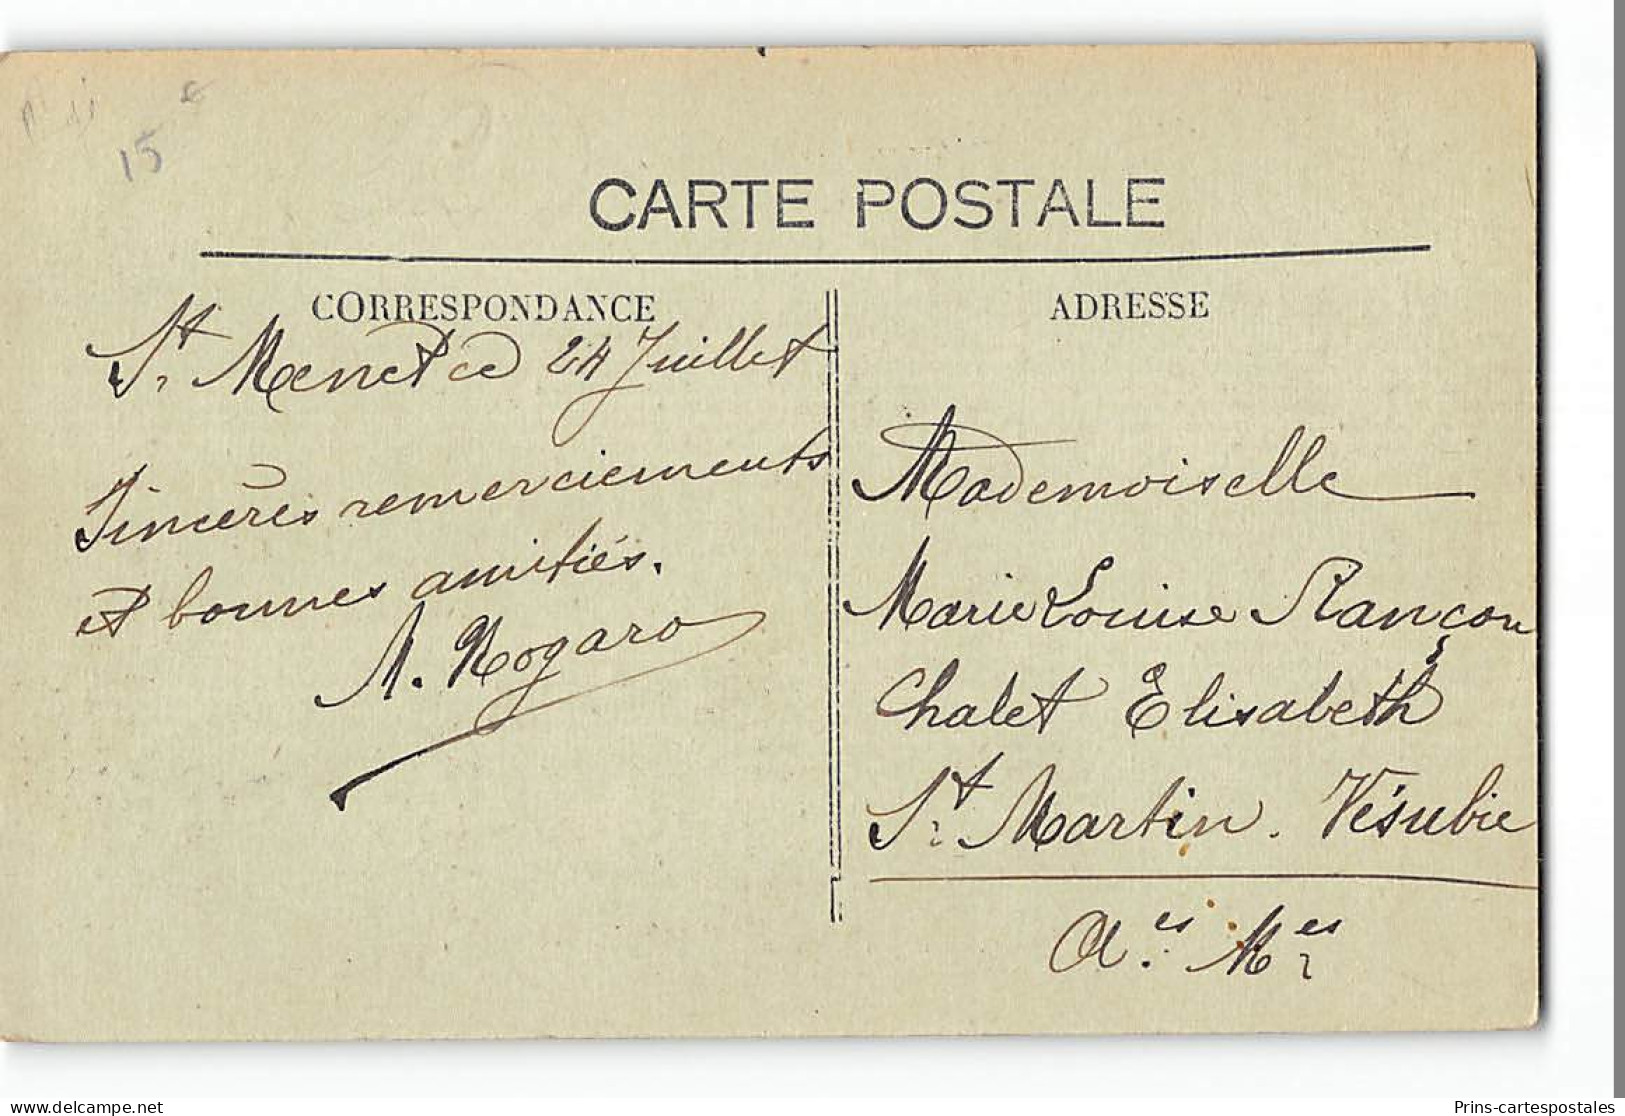 15
CARTE POSTALE
CORRESPONDANCE
ADRESSE
St Menet ce 24 Juillet
Sincères remerciements
et bonnes amitiés.
A. Nogaro
Mademoiselle
Marie Louise Rançon
Chalet Elisabeth
St Martin. Vésubie
Aes. Mes
Prins-cartespostales